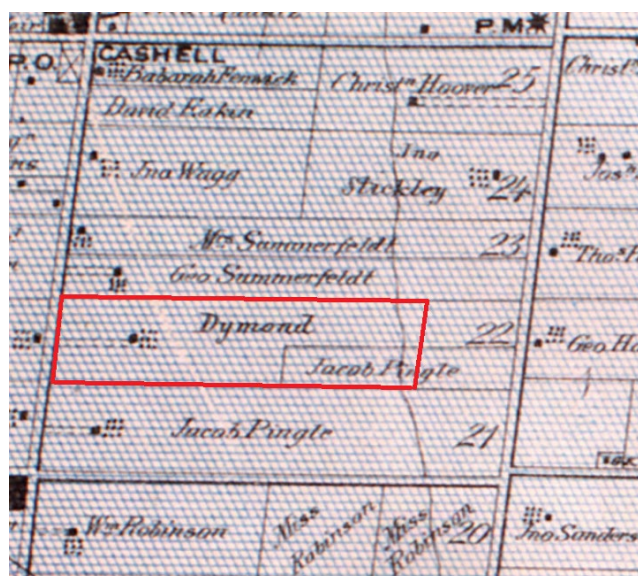 P.M
P.O.
CASHELL
Barbarah Fenwick
Christn Hoover 25
Christn
David Eakin
Jno Wagg
Jno
Stickley 24
Mrs Summerfeldt 23
Thos
Geo Summerfeldt
Dymond 22
Geo
Jacob Pingle
Jacob Pingle 21
Wm Robinson
Miss
Robinson
Miss
Robinson
20
Jno Sanders